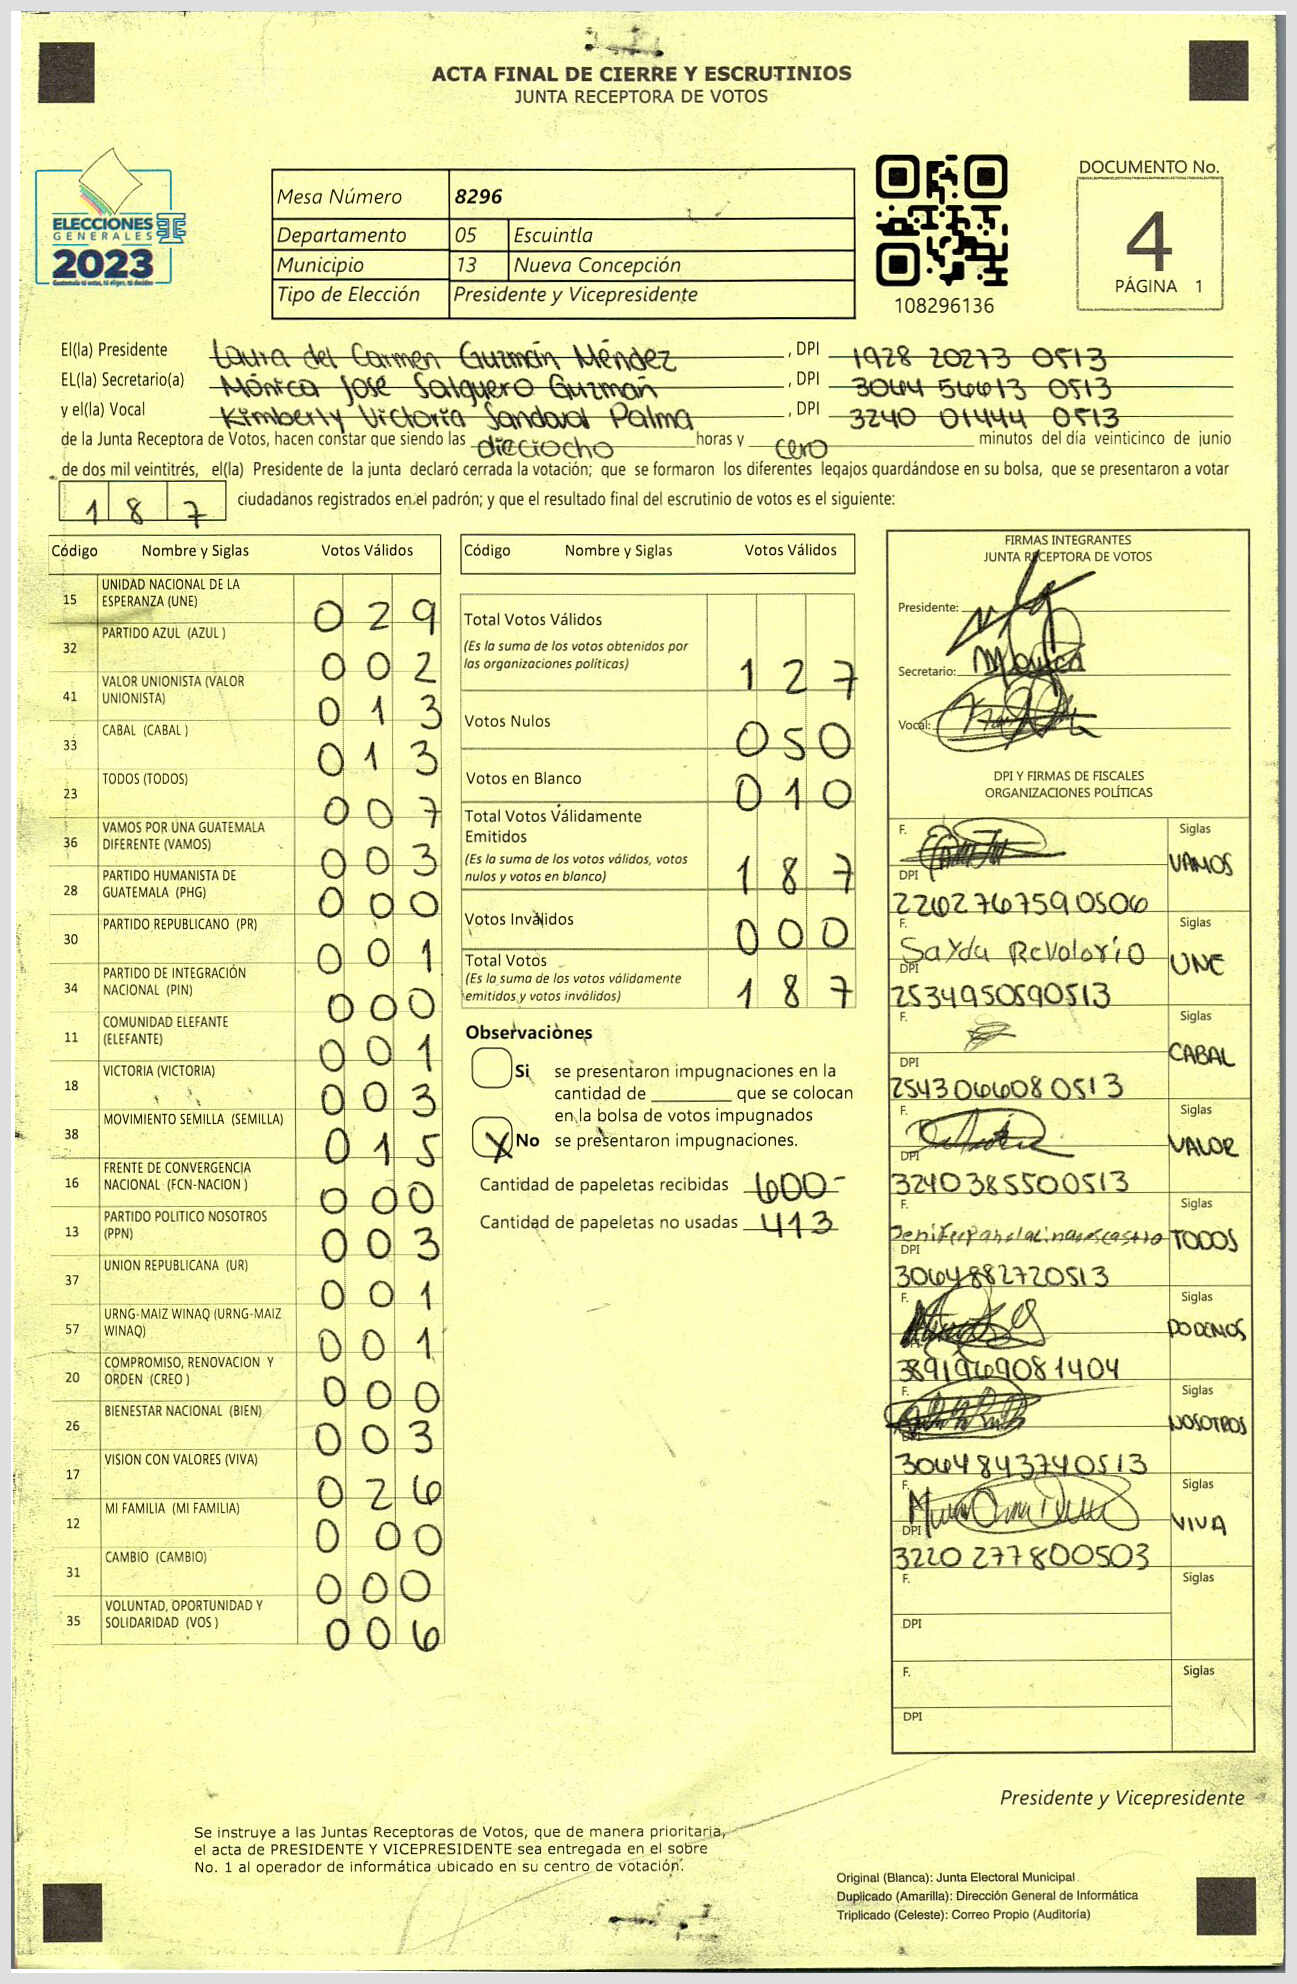 ACTA FINAL DE CIERRE Y ESCRUTINIOS
JUNTA RECEPTORA DE VOTOS
ELECCIONES
GENERALES
2023
Mesa Número 8296
Departamento 05 Escuintla
Municipio 13 Nueva Concepción
Tipo de Elección Presidente y Vicepresidente
108296136
DOCUMENTO No.
4
PÁGINA 1
El(la) Presidente Laura del Carmen Guzmán Méndez , DPI 1928 20273 0513
EL(la) Secretario(a) Mónica José Salguero Guzmán , DPI 3064 56613 0513
y el(la) Vocal Kimberly Victoria Sandoval Palma , DPI 3240 01444 0513
de la Junta Receptora de Votos, hacen constar que siendo las dieciocho horas y cero minutos del día veinticinco de junio
de dos mil veintitrés, el(la) Presidente de la junta declaró cerrada la votación; que se formaron los diferentes legajos guardándose en su bolsa, que se presentaron a votar
187 ciudadanos registrados en el padrón; y que el resultado final del escrutinio de votos es el siguiente:
Código Nombre y Siglas Votos Válidos
15 UNIDAD NACIONAL DE LA ESPERANZA (UNE) 029
32 PARTIDO AZUL (AZUL ) 002
41 VALOR UNIONISTA (VALOR UNIONISTA) 013
33 CABAL (CABAL ) 013
23 TODOS (TODOS) 007
36 VAMOS POR UNA GUATEMALA DIFERENTE (VAMOS) 003
28 PARTIDO HUMANISTA DE GUATEMALA (PHG) 000
30 PARTIDO REPUBLICANO (PR) 001
34 PARTIDO DE INTEGRACIÓN NACIONAL (PIN) 000
11 COMUNIDAD ELEFANTE (ELEFANTE) 001
18 VICTORIA (VICTORIA) 003
38 MOVIMIENTO SEMILLA (SEMILLA) 015
16 FRENTE DE CONVERGENCIA NACIONAL (FCN-NACION ) 000
13 PARTIDO POLITICO NOSOTROS (PPN) 003
37 UNION REPUBLICANA (UR) 001
57 URNG-MAIZ WINAQ (URNG-MAIZ WINAQ) 001
20 COMPROMISO, RENOVACION Y ORDEN (CREO ) 000
26 BIENESTAR NACIONAL (BIEN) 003
17 VISION CON VALORES (VIVA) 026
12 MI FAMILIA (MI FAMILIA) 000
31 CAMBIO (CAMBIO) 000
35 VOLUNTAD, OPORTUNIDAD Y SOLIDARIDAD (VOS ) 006
Código Nombre y Siglas Votos Válidos
Total Votos Válidos
(Es la suma de los votos obtenidos por
las organizaciones políticas) 127
Votos Nulos 050
Votos en Blanco 010
Total Votos Válidamente
Emitidos
(Es la suma de los votos válidos, votos
nulos y votos en blanco) 187
Votos Inválidos 000
Total Votos
(Es la suma de los votos válidamente
emitidos y votos inválidos) 187
Observaciones
Si se presentaron impugnaciones en la
cantidad de que se colocan
en la bolsa de votos impugnados
X No se presentaron impugnaciones.
Cantidad de papeletas recibidas 600-
Cantidad de papeletas no usadas 413
FIRMAS INTEGRANTES
JUNTA RECEPTORA DE VOTOS
Presidente:
Secretario: Mónica
Vocal:
DPI Y FIRMAS DE FISCALES
ORGANIZACIONES POLÍTICAS
F. Siglas
DPI VAMOS
2262767590506
F. Sayda Revolorio Siglas
DPI UNE
2534950590513
F. Siglas
DPI CABAL
2543066080513
F. Siglas
DPI VALOR
3240385500513
F. Siglas
DPI TODOS
3064882720513
F. Siglas
PODEMOS
3891969081404
F. Siglas
DPI NOSOTROS
3064843740513
F. Siglas
DPI VIVA
3220277800503
F. Siglas
DPI
F. Siglas
DPI
Presidente y Vicepresidente
Se instruye a las Juntas Receptoras de Votos, que de manera prioritaria,
el acta de PRESIDENTE Y VICEPRESIDENTE sea entregada en el sobre
No. 1 al operador de informática ubicado en su centro de votación.
Original (Blanca): Junta Electoral Municipal
Duplicado (Amarilla): Dirección General de Informática
Triplicado (Celeste): Correo Propio (Auditoría)